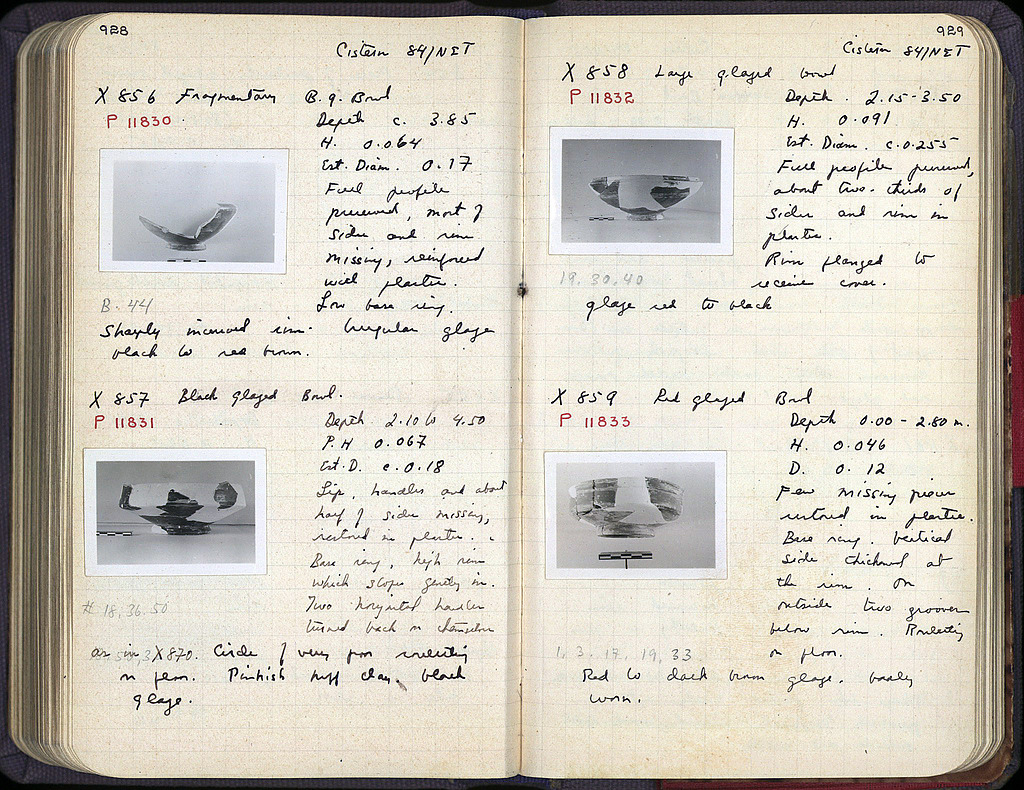 928
Cistern 84/ΝΣΤ
X 856 Fragmentary B.g. Bowl
P 11830
Depth c. 3.85
H. 0.064
Est. Diam. 0.17
Full profile
preserved, most of
sides and rim
missing, reinforced
with plaster.
Low base ring.
B. 44
Sharply incurved rim. Irregular glaze
black to red brown.
X 857 Black glazed Bowl.
P 11831
Depth 2.10 to 4.50
P.H 0.067
Est. D. c. 0.18
Lip, handles and about
half of sides missing,
restored in plaster.
Base ring, high rim
which slopes gently in.
Two horizontal handles
turned back on themselves
# 18, 36, 50
as in X 870. Circle of very poor rouletting
on floor. Pinkish buff clay. black
glaze.
929
Cistern 84/ΝΣΤ
X 858 Large glazed bowl
P 11832
Depth. 2.15-3.50
H. 0.091
Est. Diam. c. 0.255
Full profile preserved,
about two-thirds of
sides and rim in
plaster.
Rim flanged to
receive cover.
19, 30, 40
glaze red to black
X 859 Red glazed Bowl
P 11833
Depth 0.00 - 2.80 m.
H. 0.046
D. 0.12
Few missing pieces
restored in plaster.
Base ring. Vertical
side thickened at
the rim. On
outside two grooves
below rim. Rouletting
on floor.
1, 3, 17, 19, 33
Red to dark brown glaze, badly
worn.